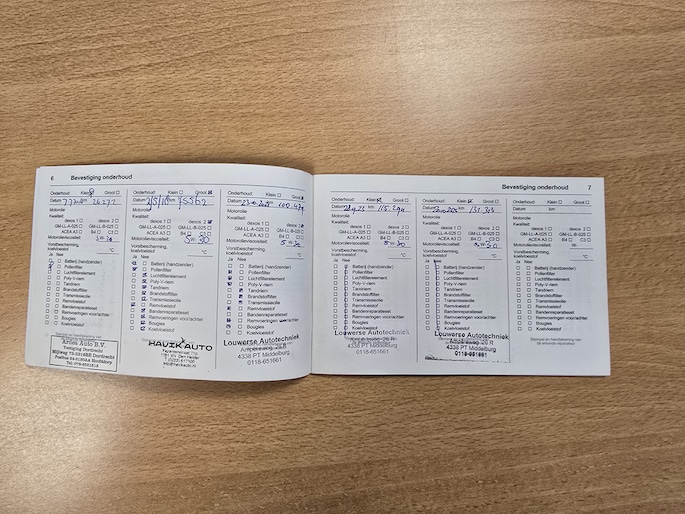 6 Bevestiging onderhoud
Onderhoud: Klein Groot
Datum km 26272
Motorolie
Kwaliteit:
dexos 1 dexos 2
GM-LL-A-025 GM-LL-B-025
ACEA A3 B4 C3
Motorolieviscositeit:
Vorstbescherming
koelvloeistof °C
Ja Nee
Batterij (handzender)
Pollenfilter
Luchtfilterelement
Poly-V-riem
Tandriem
Brandstoffilter
Transmissieolie
Remvloeistof
Bandenreparatieset
Remvoeringen voor/achter
Bougies
Koelvloeistof
Ardea Auto B.V.
Vestiging Dordrecht
Onderhoud: Klein Groot
Datum km 75562
Motorolie
Kwaliteit:
dexos 1 dexos 2
GM-LL-A-025 GM-LL-B-025
ACEA A3 B4 C3
Motorolieviscositeit: 5W30
Vorstbescherming
koelvloeistof °C
Ja Nee
Batterij (handzender)
Pollenfilter
Luchtfilterelement
Poly-V-riem
Tandriem
Brandstoffilter
Transmissieolie
Remvloeistof
Bandenreparatieset
Remvoeringen voor/achter
Bougies
Koelvloeistof
HAVIKAUTO
Onderhoud: Klein Groot
Datum km
Motorolie
Kwaliteit:
dexos 1 dexos 2
GM-LL-A-025 GM-LL-B-025
ACEA A3 B4 C3
Motorolieviscositeit: 5W30
Vorstbescherming
koelvloeistof °C
Ja Nee
Batterij (handzender)
Pollenfilter
Luchtfilterelement
Poly-V-riem
Tandriem
Brandstoffilter
Transmissieolie
Remvloeistof
Bandenreparatieset
Remvoeringen voor/achter
Bougies
Koelvloeistof
Louwerse Autotechniek
Amperestraat 26 R
4338 PT Middelburg
0118-651661
Bevestiging onderhoud 7
Onderhoud: Klein Groot
Datum km
Motorolie
Kwaliteit:
dexos 1 dexos 2
GM-LL-A-025 GM-LL-B-025
ACEA A3 B4 C3
Motorolieviscositeit: 5W30
Vorstbescherming
koelvloeistof °C
Ja Nee
Batterij (handzender)
Pollenfilter
Luchtfilterelement
Poly-V-riem
Tandriem
Brandstoffilter
Transmissieolie
Remvloeistof
Bandenreparatieset
Remvoeringen voor/achter
Bougies
Koelvloeistof
Louwerse Autotechniek
4338 PT Middelburg
0118-651661
Onderhoud: Klein Groot
Datum km 131.303
Motorolie
Kwaliteit:
dexos 1 dexos 2
GM-LL-A-025 GM-LL-B-025
ACEA A3 B4 C3
Motorolieviscositeit: 5W30
Vorstbescherming
koelvloeistof °C
Ja Nee
Batterij (handzender)
Pollenfilter
Luchtfilterelement
Poly-V-riem
Tandriem
Brandstoffilter
Transmissieolie
Remvloeistof
Bandenreparatieset
Remvoeringen voor/achter
Bougies
Koelvloeistof
Louwerse Autotechniek
4338 PT Middelburg
0118-651661
Onderhoud: Klein Groot
Datum km
Motorolie
Kwaliteit:
dexos 1 dexos 2
GM-LL-A-025 GM-LL-B-025
ACEA A3 B4 C3
Motorolieviscositeit:
Vorstbescherming
koelvloeistof °C
Ja Nee
Batterij (handzender)
Pollenfilter
Luchtfilterelement
Poly-V-riem
Tandriem
Brandstoffilter
Transmissieolie
Remvloeistof
Bandenreparatieset
Remvoeringen voor/achter
Bougies
Koelvloeistof